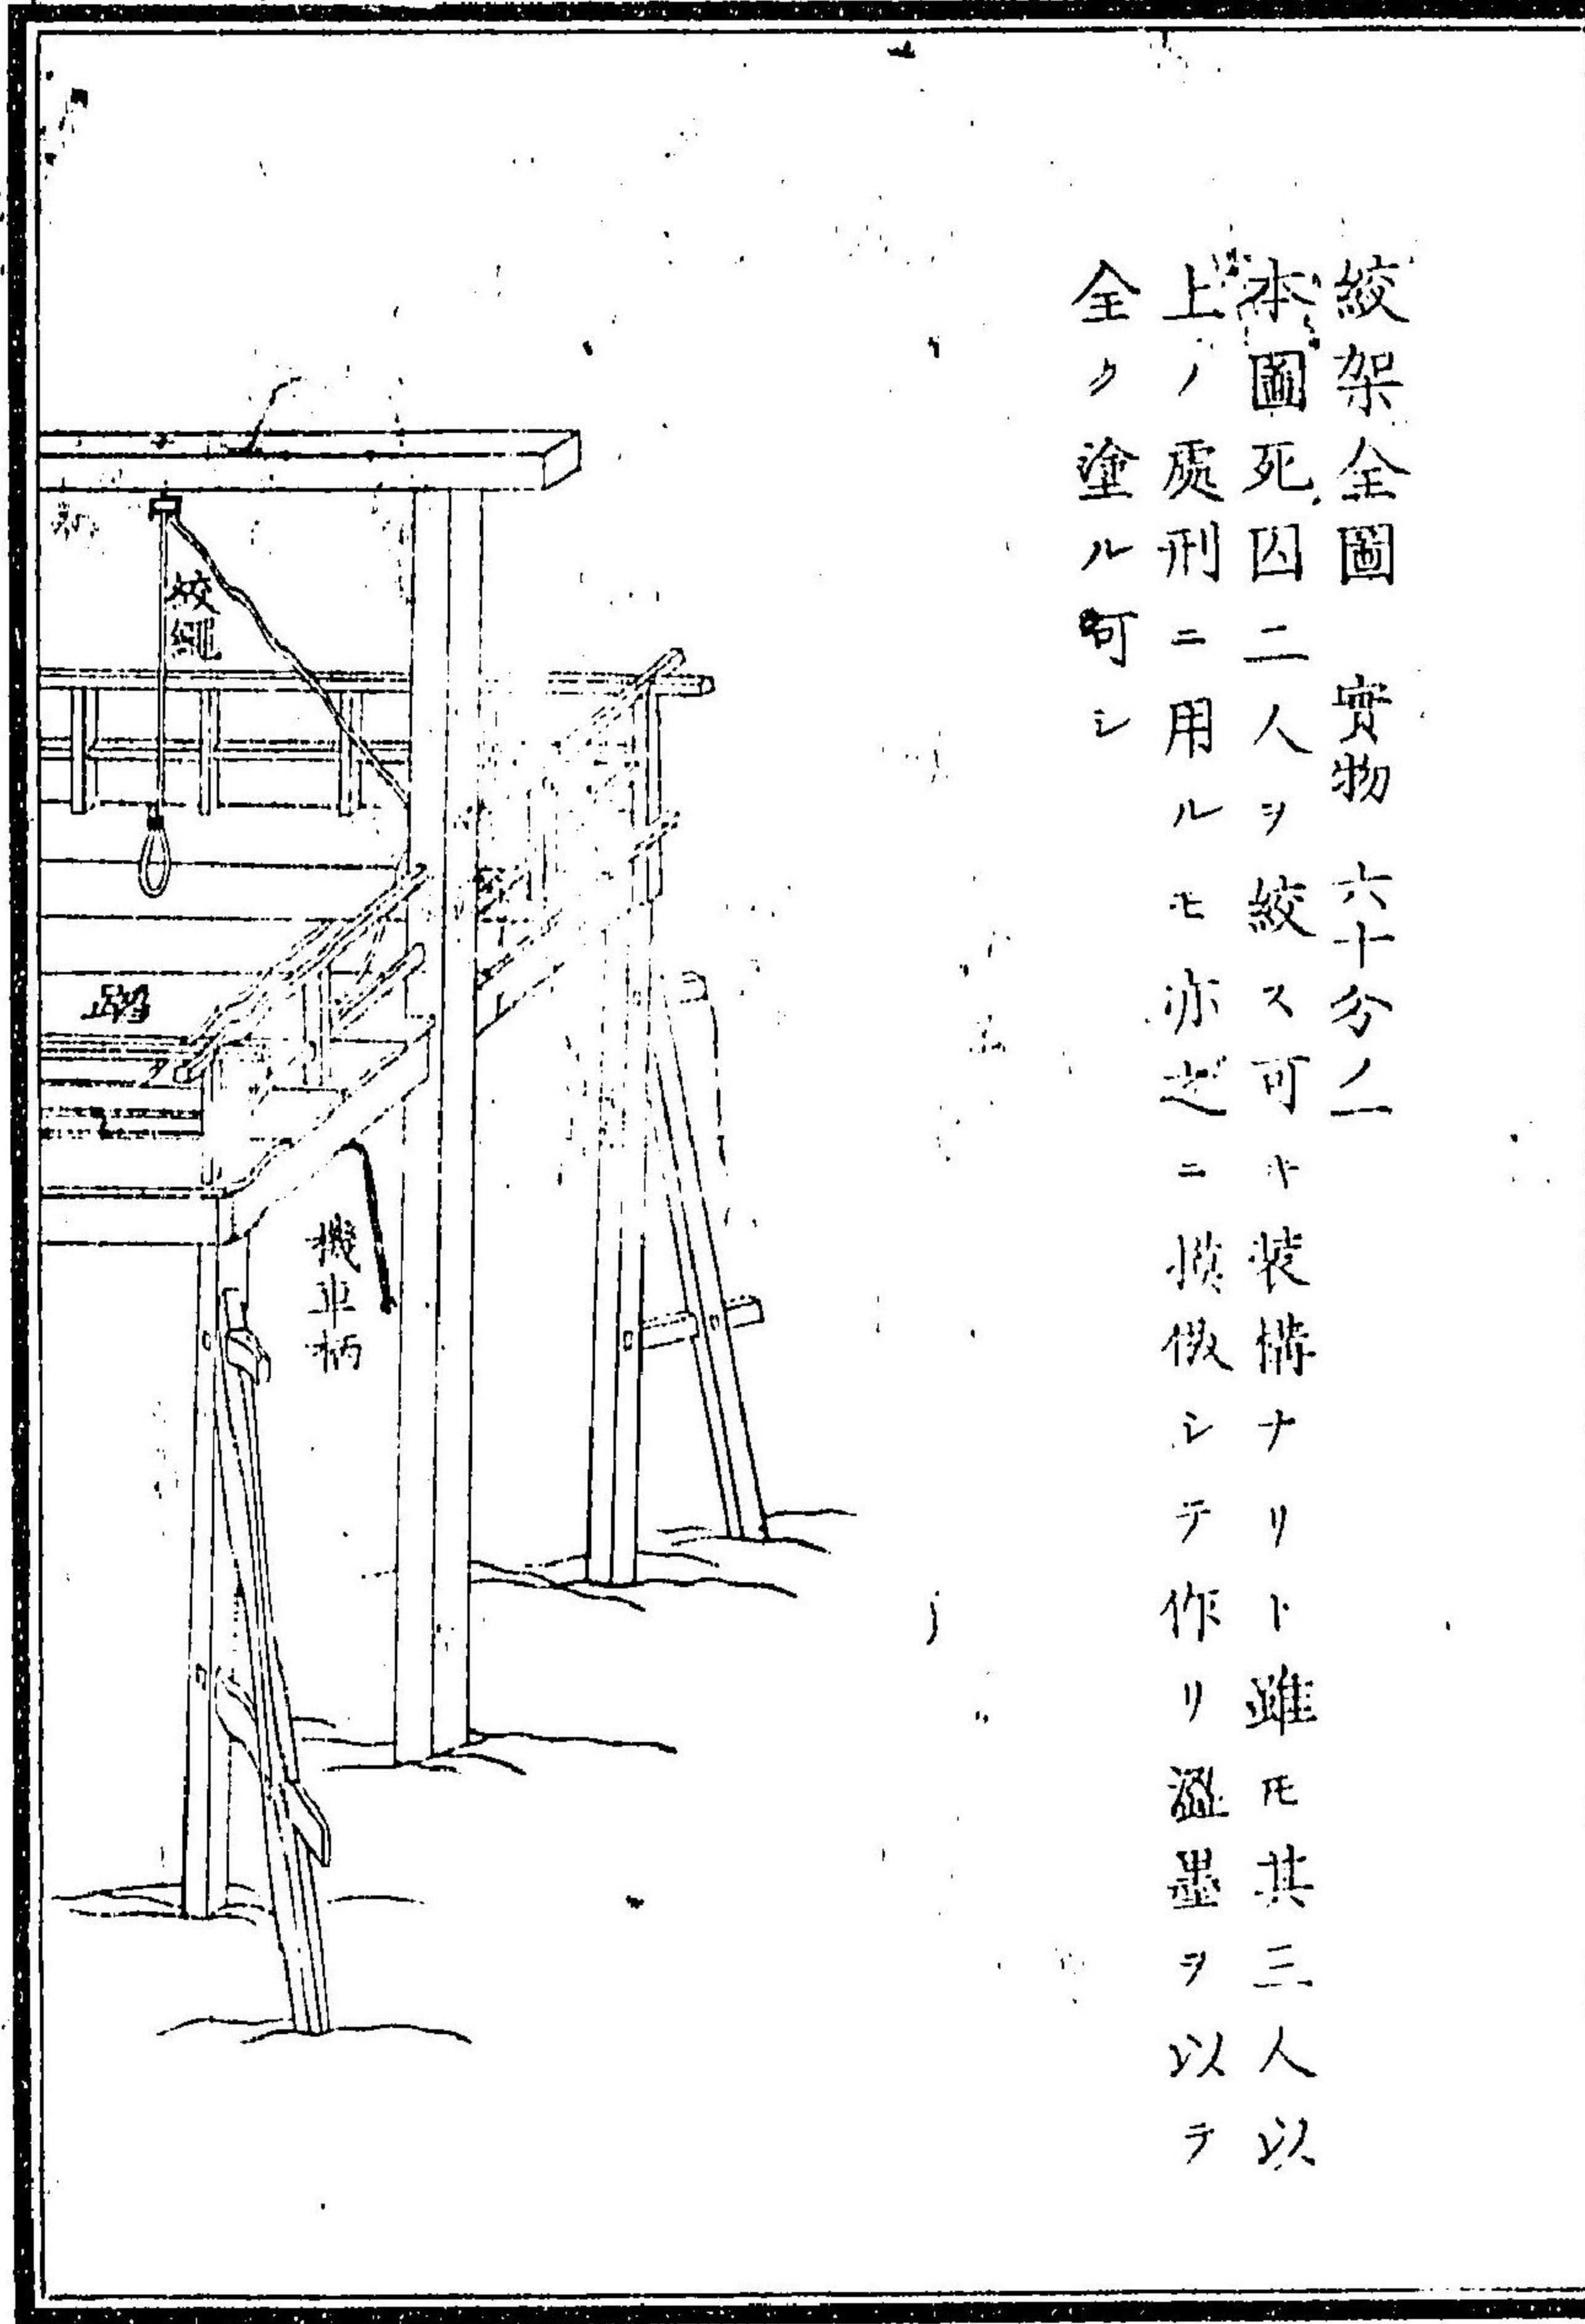 絞架全圖 實物 六十分ノ一
本圖死囚二人ヲ絞ス可キ装構ナリト雖𪜈其三人以
上ノ處刑ニ用ルモ亦之ニ摸倣シテ作リ澁墨ヲ以テ
全ク塗ル可シ
絞繩
機車柄